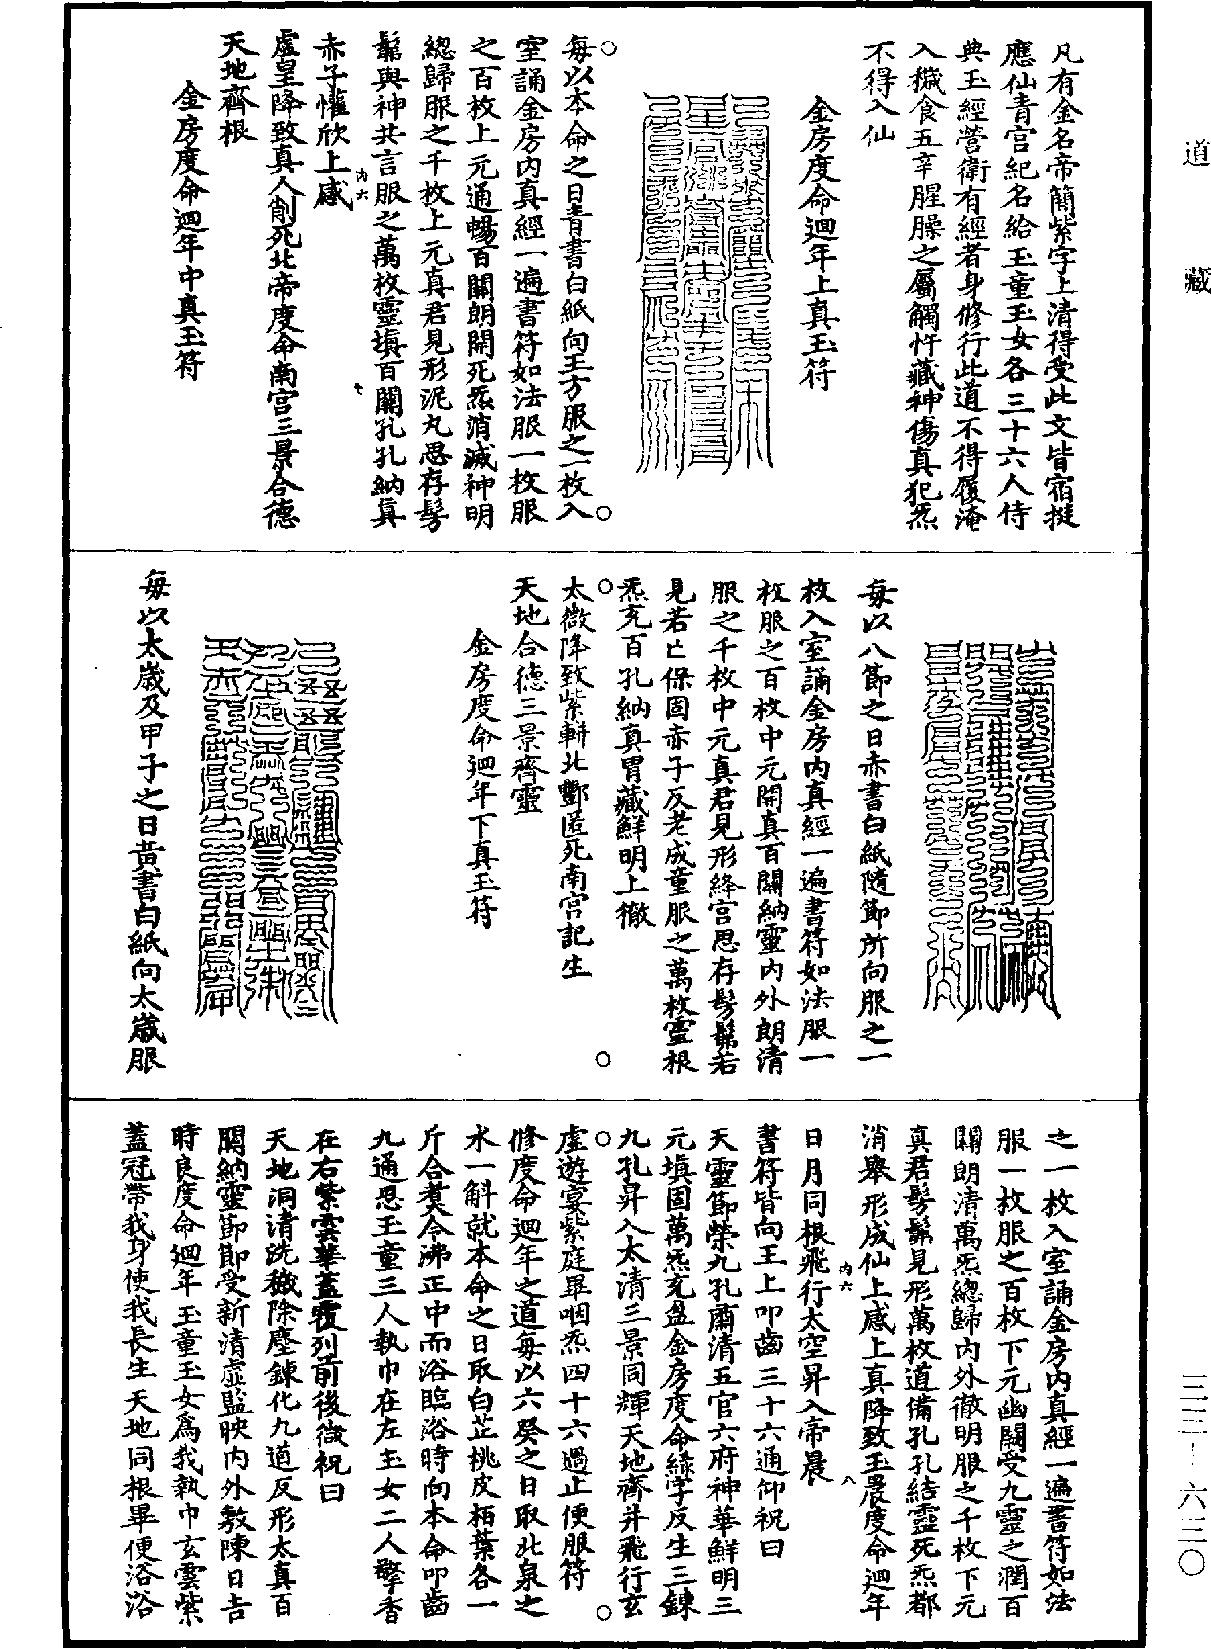 道藏
凡有金名帝簡紫字上清得受此文皆宿挺
應仙青宮紀名給玉童玉女各三十六人侍
典玉經營衛有經者身修行此道不得履淹
入穢食五辛腥臊之屬觸忤藏神傷真犯炁
不得入仙
金房度命迴年上真玉符
每以本命之日青書白紙向王方服之一枚入
室誦金房內真經一遍書符如法服一枚服
之百枚上元通暢百關朗開死炁消滅神明
總歸服之千枚上元真君見形泥丸思存髣
髴與神共言服之萬枚靈填百關孔孔納真
赤子懽欣上感
虛皇降致真人削死北帝度命南宮三景合德
天地齊根
金房度命迴年中真玉符
每以八節之日赤書白紙隨節所向服之一
枚入室誦金房內真經一遍書符如法服一
枚服之百枚中元開真百關納靈內外朗清
服之千枚中元真君見形絳宮思存髣髴若
見若亡保固赤子反老成童服之萬枚靈根
炁充百孔納真胃藏鮮明上徹
太微降致紫軿北酆匿死南宮記生
天地合德三景齊靈
金房度命迴年下真玉符
每以太歲及甲子之日黃書白紙向太歲服
之一枚入室誦金房內真經一遍書符如法
服一枚服之百枚下元幽關受九靈之潤百
關朗清萬炁總歸內外徹明服之千枚下元
真君髣髴見形萬枚道備孔孔結靈死炁都
消舉形成仙上感上真降致玉晨度命迴年
日月同根飛行太空昇入帝晨
書符皆向王上叩齒三十六通仰祝曰
天靈節榮九孔肅清五官六府神華鮮明三
元填固萬炁充盈金房度命綠字反生三鍊
九孔昇入太清三景同輝天地齊并飛行玄
虛遊宴紫庭畢咽炁四十六過止便服符
修度命迴年之道每以六癸之日取北泉之
水一斛就本命之日取白芷桃皮栢葉各一
斤合煑令沸正中而浴臨浴時向本命叩齒
九通思玉童三人執巾在左玉女二人擎香
在右紫雲華蓋覆列前後微祝曰
天地洞清洗穢除塵鍊化九道反形太真百
關納靈節節受新清虛監映內外敷陳日吉
時良度命迴年玉童玉女為我執巾玄雲紫
蓋冠帶我身使我長生天地同根畢便浴浴
三三－六三〇